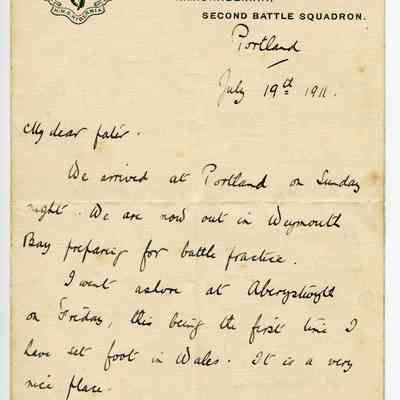 H.M.S. HIBERNIA
SECOND BATTLE SQUADRON.
Portland
July 19th 1911.
My dear pater.
We arrived at Portland on Sunday
night. We are now out in Weymouth
Bay preparing for battle practice.
I went ashore at Aberystwyth
on Friday, this being the first time I
have set foot in Wales. It is a very
nice place.